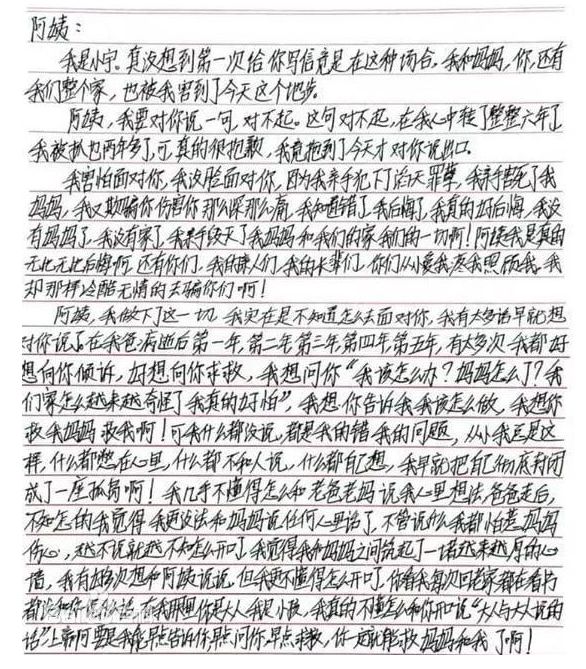 阿姨：
我是小宁。真没想到第一次给你写信竟是在这种场合。我和妈妈，你，还有
我们整个家，也被我害到了今天这个地步。
阿姨，我要对你说一句，对不起。这句对不起，在我心中转了整整六年了
我被抓也两年多了，可真的很抱歉，我竟拖到了今天才对你说出口。
我害怕面对你，我没脸面对你，因为我亲手犯下了滔天罪孽，我亲手害死了我
妈妈，我又欺骗你伤害你那么深那么痛，我知道错了我后悔了，我真的好后悔，我没
有妈妈了，我没有家了，我亲手毁灭了我妈妈和我们的家我们的一切啊！阿姨我是真的
无比无比后悔啊，还有你们，我的亲人们，我的长辈们，你们从小爱我疼我照顾我，我
却那样冷酷无情的去骗你们啊！
阿姨，我做下了这一切，我实在是不知道怎么去面对你，我有太多话早就想
对你说了。在我爸病逝后第一年，第二年，第三年，第四年，第五年，有太多次我都好
想向你倾诉，好想向你求救，我想问你“我该怎么办？妈妈怎么了？我
们家怎么越来越奇怪了我真的好怕”，我想你告诉我我该怎么做，我想你
救我妈妈救我啊！可我什么都没说，都是我的错我的问题，从小我总是这
样，什么都憋在心里，什么都不和人说，什么都自己想，我早就把自己彻底封闭
成了一座孤岛啊！我几乎不懂得怎么和老爸老妈说我心里想法，爸爸走后，
不知怎的我觉得我更没法和妈妈说任何心里话了，不管说什么我都怕惹妈妈
伤心，越不说就越不知怎么开口了，我觉得我和妈妈之间筑起了一堵越来越厚的心
墙，我有好多次想和阿姨说说，但我更不懂得怎么开口了，你看我每次回老家都在看书
都没和你说什么话，在我那里你是大人我是小孩，我真的不懂怎么和你开口说“大人与大人说的
话”上帝啊要是我能早点告诉你，早点问你，早点求救，你一定就能救妈妈和我了啊！